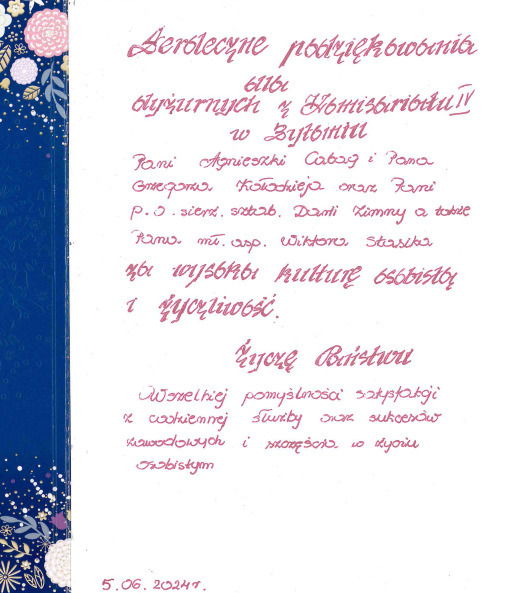 Serdeczne podziękowania
dla
dyżurnych z Komisariatu IV
w Bytomiu
Pani Agnieszki Cabag i Pana
Grzegorza Kołodzieja oraz Pani
p.o. sierż. sztab. Darii Zimny a także
Pana mł. asp. Wiktora Stasika
za wysoką kulturę osobistą
i życzliwość.
Życzę Państwu
Wszelkiej pomyślności satysfakcji
z codziennej służby oraz sukcesów
zawodowych i szczęścia w życiu
osobistym
5.06.2024r.